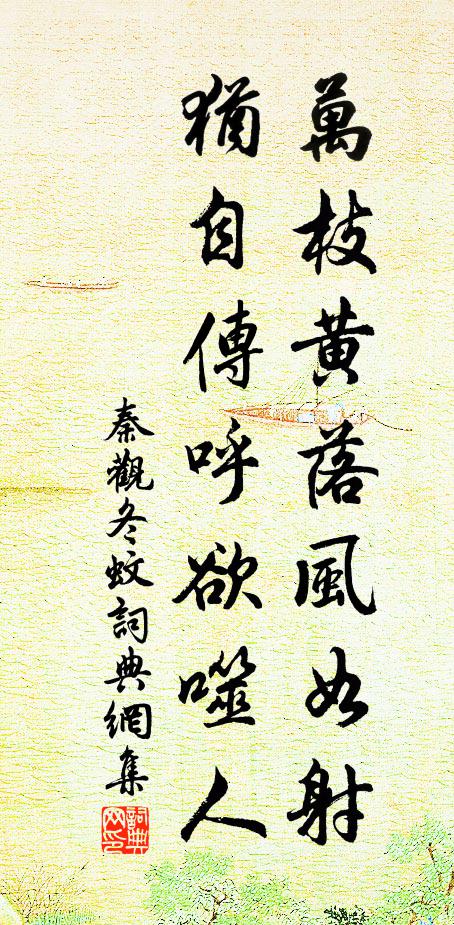 萬枝黃落風如射
猶自傳呼欲噬人
秦觀冬蚊詞典網集
詞典网印